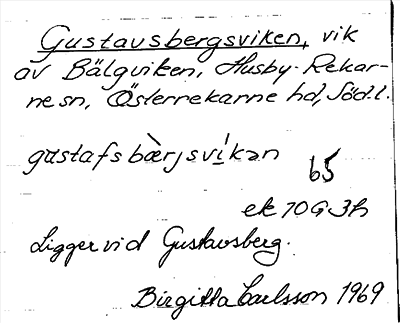 Gustavsbergsviken, vik
av Bälgviken, Husby-Rekar-
ne sn, Österrekarne hd, Södl.
gustafsbàrjsvíkən
65
ek 10G3h
Ligger vid Gustavsberg.
Birgitta Carlsson 1969